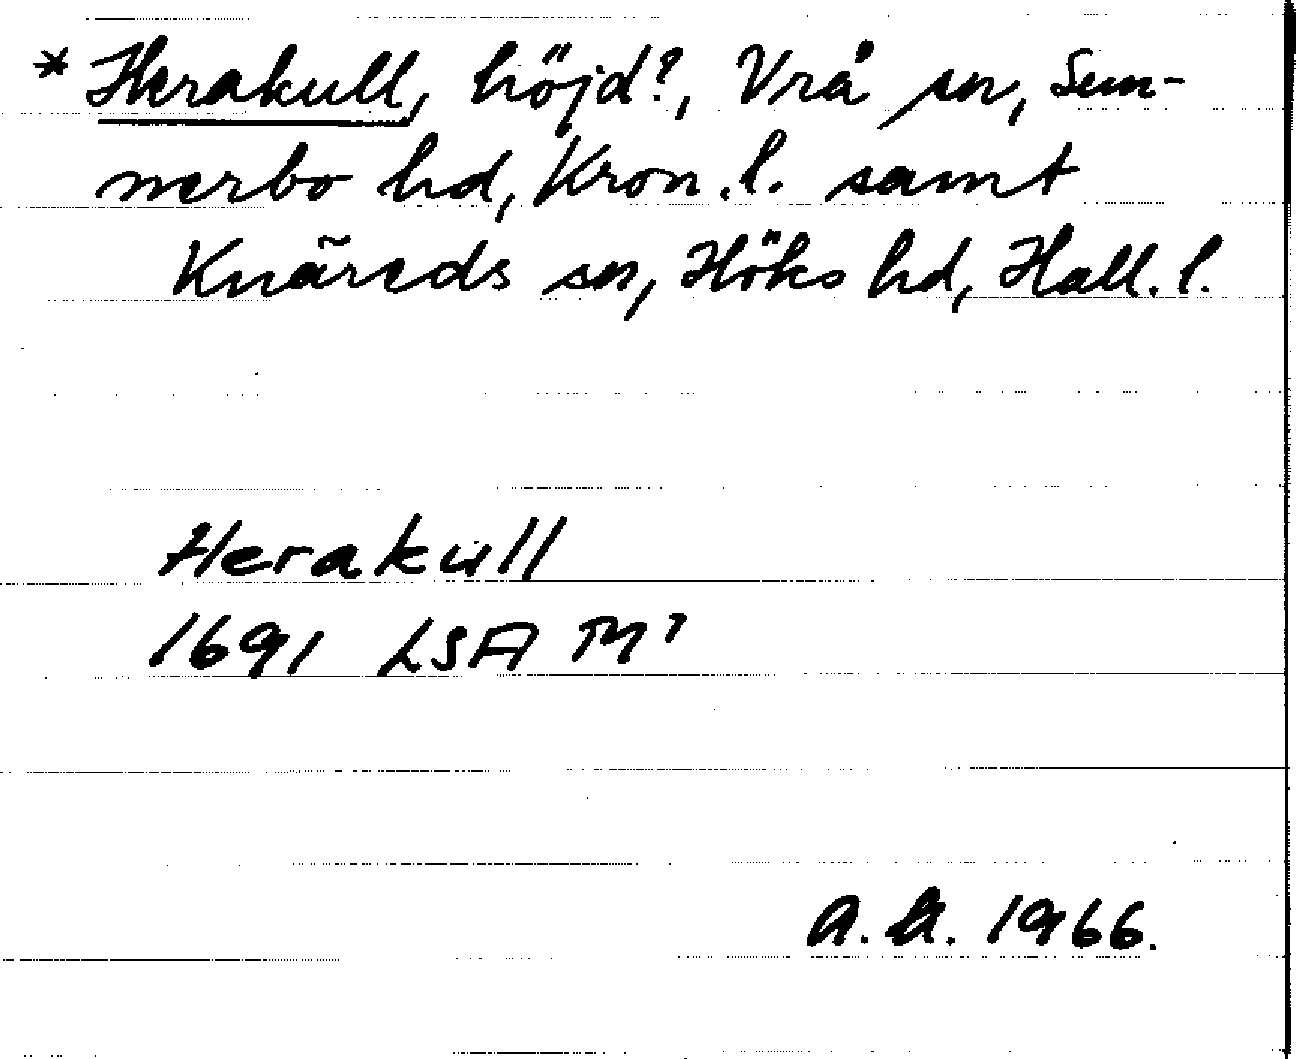 * Herakull, höjd?, Vrå sn, Sun-
nerbo hd, Kron. l. samt
Knäreds sn, Höks hd, Hall. l.
Herakull
1691 LSA M¹
1966.